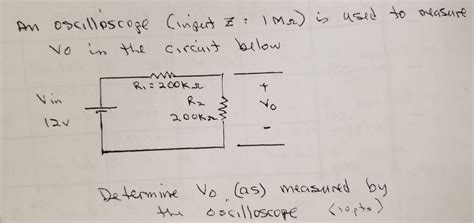 An oscilloscope (input Z = 1MΩ) is used to measure
Vo in the circuit below
R1 = 200KΩ
Vin
12V
R2
200KΩ
+
Vo
-
Determine Vo (as) measured by
the oscilloscope (10pts)